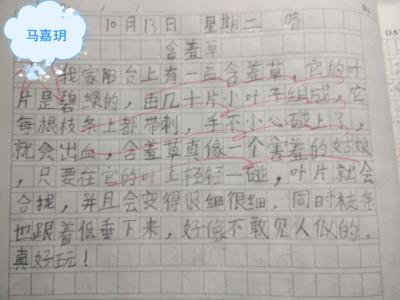 马嘉玥
10月13日 星期二 晴
含羞草
我家阳台上有一盆含羞草，它的叶
片是碧绿的，由几十片小叶子组成，它
每根枝条上都带刺，手不小心碰上了，
就会出血，含羞草真像一个害羞的姑娘
，只要在它的叶上轻轻一碰，叶片就会
合拢，并且会变得很细很细，同时枝条
也跟着低垂下来，好像不敢见人似的。
真好玩！
DAT